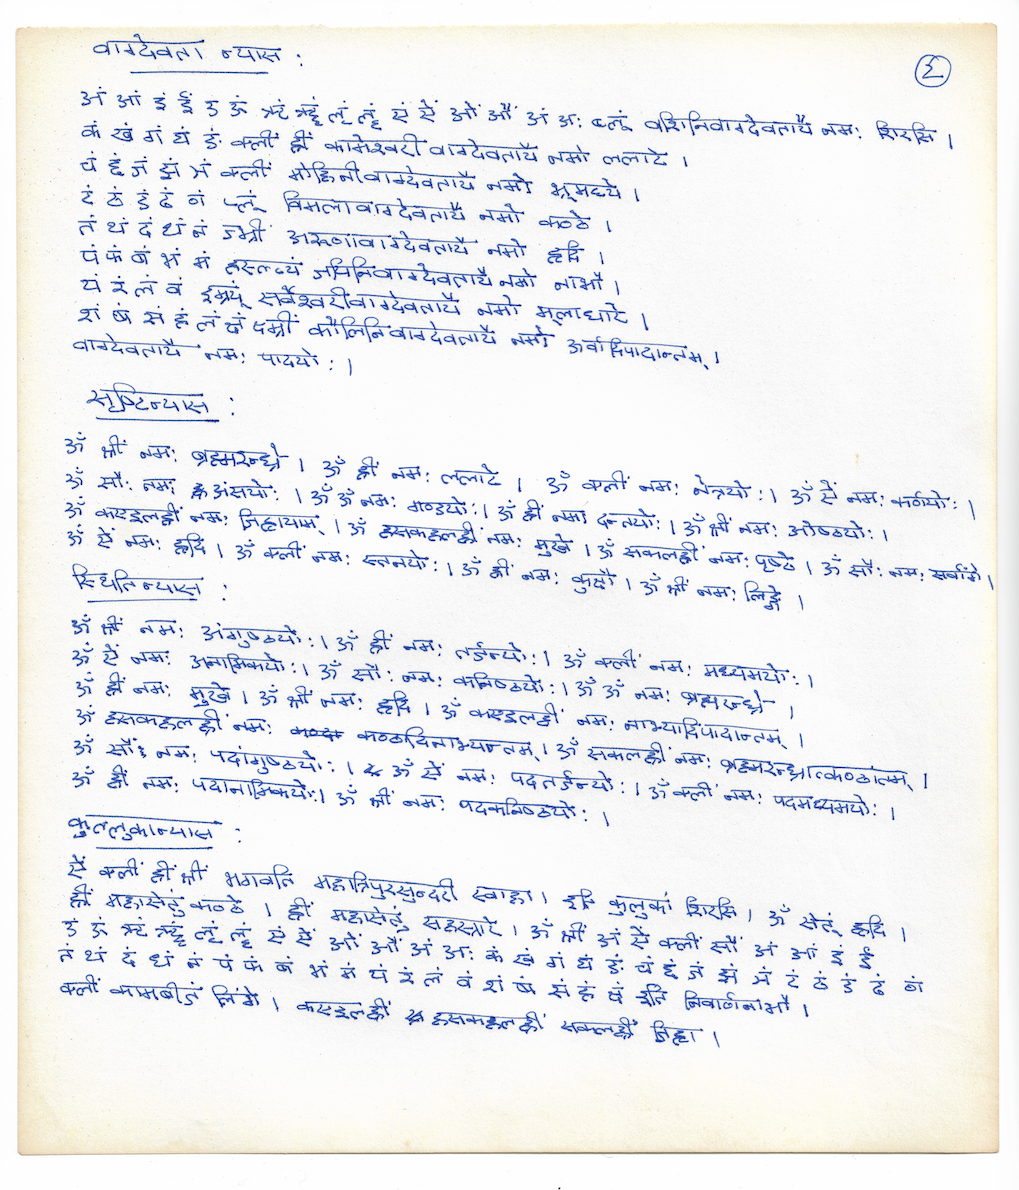 वाग्देवता न्यास :
६
अं आं इं ईं उं ऊं ऋं ॠं लृं लॄं एं ऐं ओं औं अं अः ब्लूं वशिनिवाग्देवतायै नमः शिरसि ।
कं खं गं घं ङं क्लीं ह्रीं कामेश्वरीवाग्देवतायै नमो ललाटे ।
चं छं जं झं ञं क्लीं मोहिनीवाग्देवतायै नमो भ्रूमध्ये ।
टं ठं डं ढं णं प्लूं विमलावाग्देवतायै नमो कण्ठे ।
तं थं दं धं नं ज्म्रीं अरुणावाग्देवतायै नमो हृदि ।
पं फं बं भं मं हस्लव्यं जयिनिवाग्देवतायै नमो नाभौ ।
यं रं लं वं इम्रयूं सर्वेश्वरीवाग्देवतायै नमो मूलाधारे ।
शं षं सं हं लं क्षं क्ष्म्रीं कौलिनिवाग्देवतायै नमो ऊर्वादिपादान्तम् ।
वाग्देवतायै नमः पादयोः ।
सृष्टिन्यास :
ॐ श्रीं नमः ब्रह्मरन्ध्रे । ॐ ह्रीं नमः ललाटे । ॐ क्लीं नमः नेत्रयोः । ॐ ऐं नमः कर्णयोः ।
ॐ सौः नमः अंसयोः । ॐ ॐ नमः गण्डयोः । ॐ ह्रीं नमः दन्तयोः । ॐ श्रीं नमः ओष्ठयोः ।
ॐ कएइलह्रीं नमः जिह्वायाम् । ॐ हसकहलह्रीं नमः मुखे । ॐ सकलह्रीं नमः पृष्ठे । ॐ सौः नमः सर्वांगे ।
ॐ ऐं नमः हृदि । ॐ क्लीं नमः स्तनयोः । ॐ ह्रीं नमः कुक्षौ । ॐ श्रीं नमः लिङ्गे ।
स्थितिन्यास :
ॐ श्रीं नमः अंगुष्ठयोः । ॐ ह्रीं नमः तर्जन्योः । ॐ क्लीं नमः मध्यमयोः ।
ॐ ऐं नमः अनामिकयोः । ॐ सौः नमः कनिष्ठयोः । ॐ ॐ नमः ब्रह्मरन्ध्रे ।
ॐ ह्रीं नमः मुखे । ॐ श्रीं नमः हृदि । ॐ कएइलह्रीं नमः नाभ्यादिपादान्तम् ।
ॐ हसकहलह्रीं नमः कण्ठादिनाभ्यन्तम् । ॐ सकलह्रीं नमः ब्रह्मरन्ध्रात्कण्ठांतम् ।
ॐ सौः नमः पदांगुष्ठयोः । ॐ ऐं नमः पदतर्जन्योः । ॐ क्लीं नमः पदमध्यमयोः ।
ॐ ह्रीं नमः पदानामिकयोः । ॐ श्रीं नमः पदकनिष्ठयोः ।
कुल्लुकान्यास :
ऐं क्लीं ह्रीं श्रीं भगवति महात्रिपुरसुन्दरी स्वाहा । इति कुलुकां शिरसि । ॐ सेतुं हृदि ।
ह्रीं महासेतुं कण्ठे । ह्रीं महासेतुं सहस्रारे । ॐ श्रीं अं ऐं क्लीं सौं अं आं इं ईं
उं ऊं ऋं ॠं लृं लॄं एं ऐं ओं औं अं अः कं खं गं घं ङं चं छं जं झं ञं टं ठं डं ढं णं
तं थं दं धं नं पं फं बं भं मं यं रं लं वं शं षं सं हं क्षं इति निर्वाणनाभौ ।
क्लीं कामबीजं लिंगे । कएइलह्रीं हसकहलह्रीं सकलह्रीं जिह्वा ।